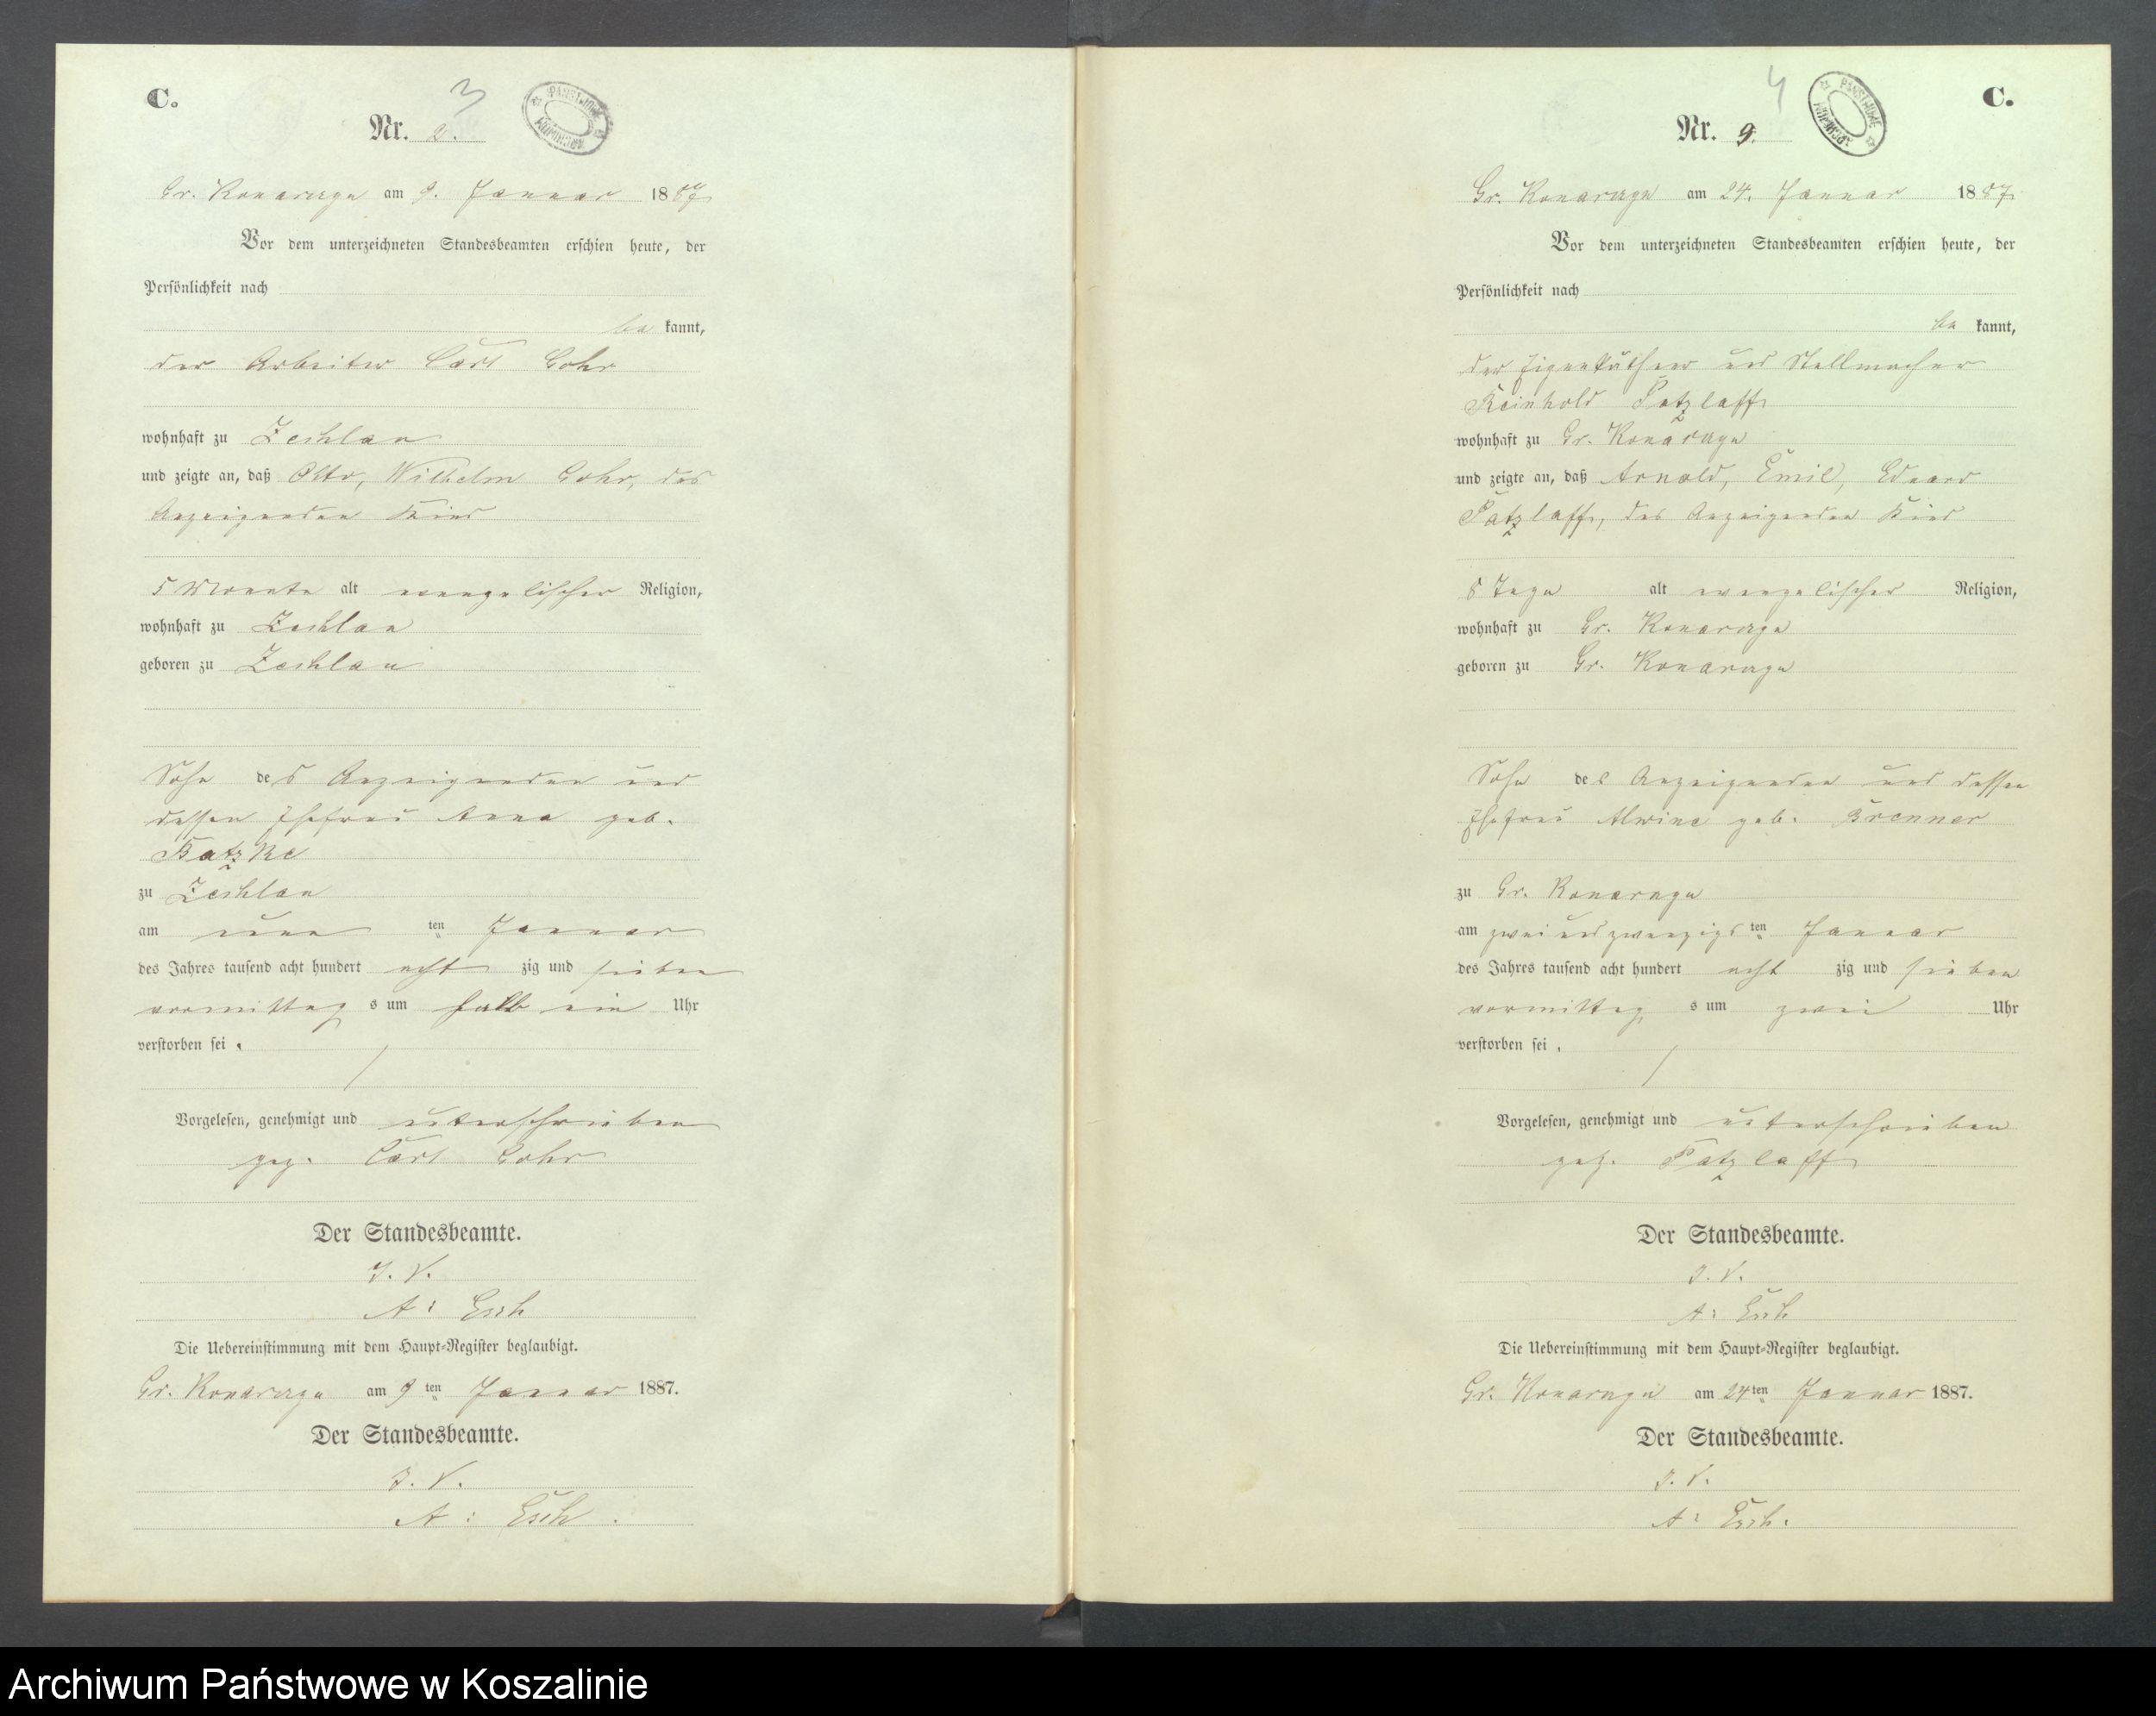 C.
3
Nr. 2.
PAŃSTWOWE ARCHIWUM
Gr. Konarzyn am 9. Januar 1887
Vor dem unterzeichneten Standesbeamten erschien heute, der
Persönlichkeit nach
be kannt,
der Arbeiter Carl Gohr
wohnhaft zu Zechlau
und zeigte an, daß Otto, Wilhelm Gohr, des
Anzeigenden Kind
5 Monate alt evangelischer Religion,
wohnhaft zu Zechlau
geboren zu Zechlau
Sohn des Anzeigenden und
dessen Ehefrau Anna geb.
Batzke
zu Zechlau
am neun ten Januar
des Jahres tausend acht hundert acht zig und sieben
vormittag s um halb ein Uhr
verstorben sei.
Vorgelesen, genehmigt und unterschrieben
gez. Carl Gohr
Der Standesbeamte.
I. V.
A: Esch
Die Uebereinstimmung mit dem Haupt-Register beglaubigt.
Gr. Konarzyn am 9ten Januar 1887.
Der Standesbeamte.
I. V.
A: Esch.
4
C.
Nr. 9.
PAŃSTWOWE ARCHIWUM
Gr. Konarzyn am 24. Januar 1887
Vor dem unterzeichneten Standesbeamten erschien heute, der
Persönlichkeit nach
be kannt,
der Eigenkäthner und Stellmacher
Reinhold Patzlaff
wohnhaft zu Gr. Konarzyn
und zeigte an, daß Arnold, Emil, Eduard
Patzlaff, des Anzeigenden Kind
8 Tage alt evangelischer Religion,
wohnhaft zu Gr. Konarzyn
geboren zu Gr. Konarzyn
Sohn des Anzeigenden und dessen
Ehefrau Alwine geb. Brenner
zu Gr. Konarzyn
am zwei und zwanzigsten Januar
des Jahres tausend acht hundert acht zig und sieben
vormittag s um zwei Uhr
verstorben sei.
Vorgelesen, genehmigt und unterschrieben
gez. Patzlaff
Der Standesbeamte.
I. V.
A: Esch
Die Uebereinstimmung mit dem Haupt-Register beglaubigt.
Gr. Konarzyn am 24ten Januar 1887.
Der Standesbeamte.
I. V.
A: Esch.
Archiwum Państwowe w Koszalinie